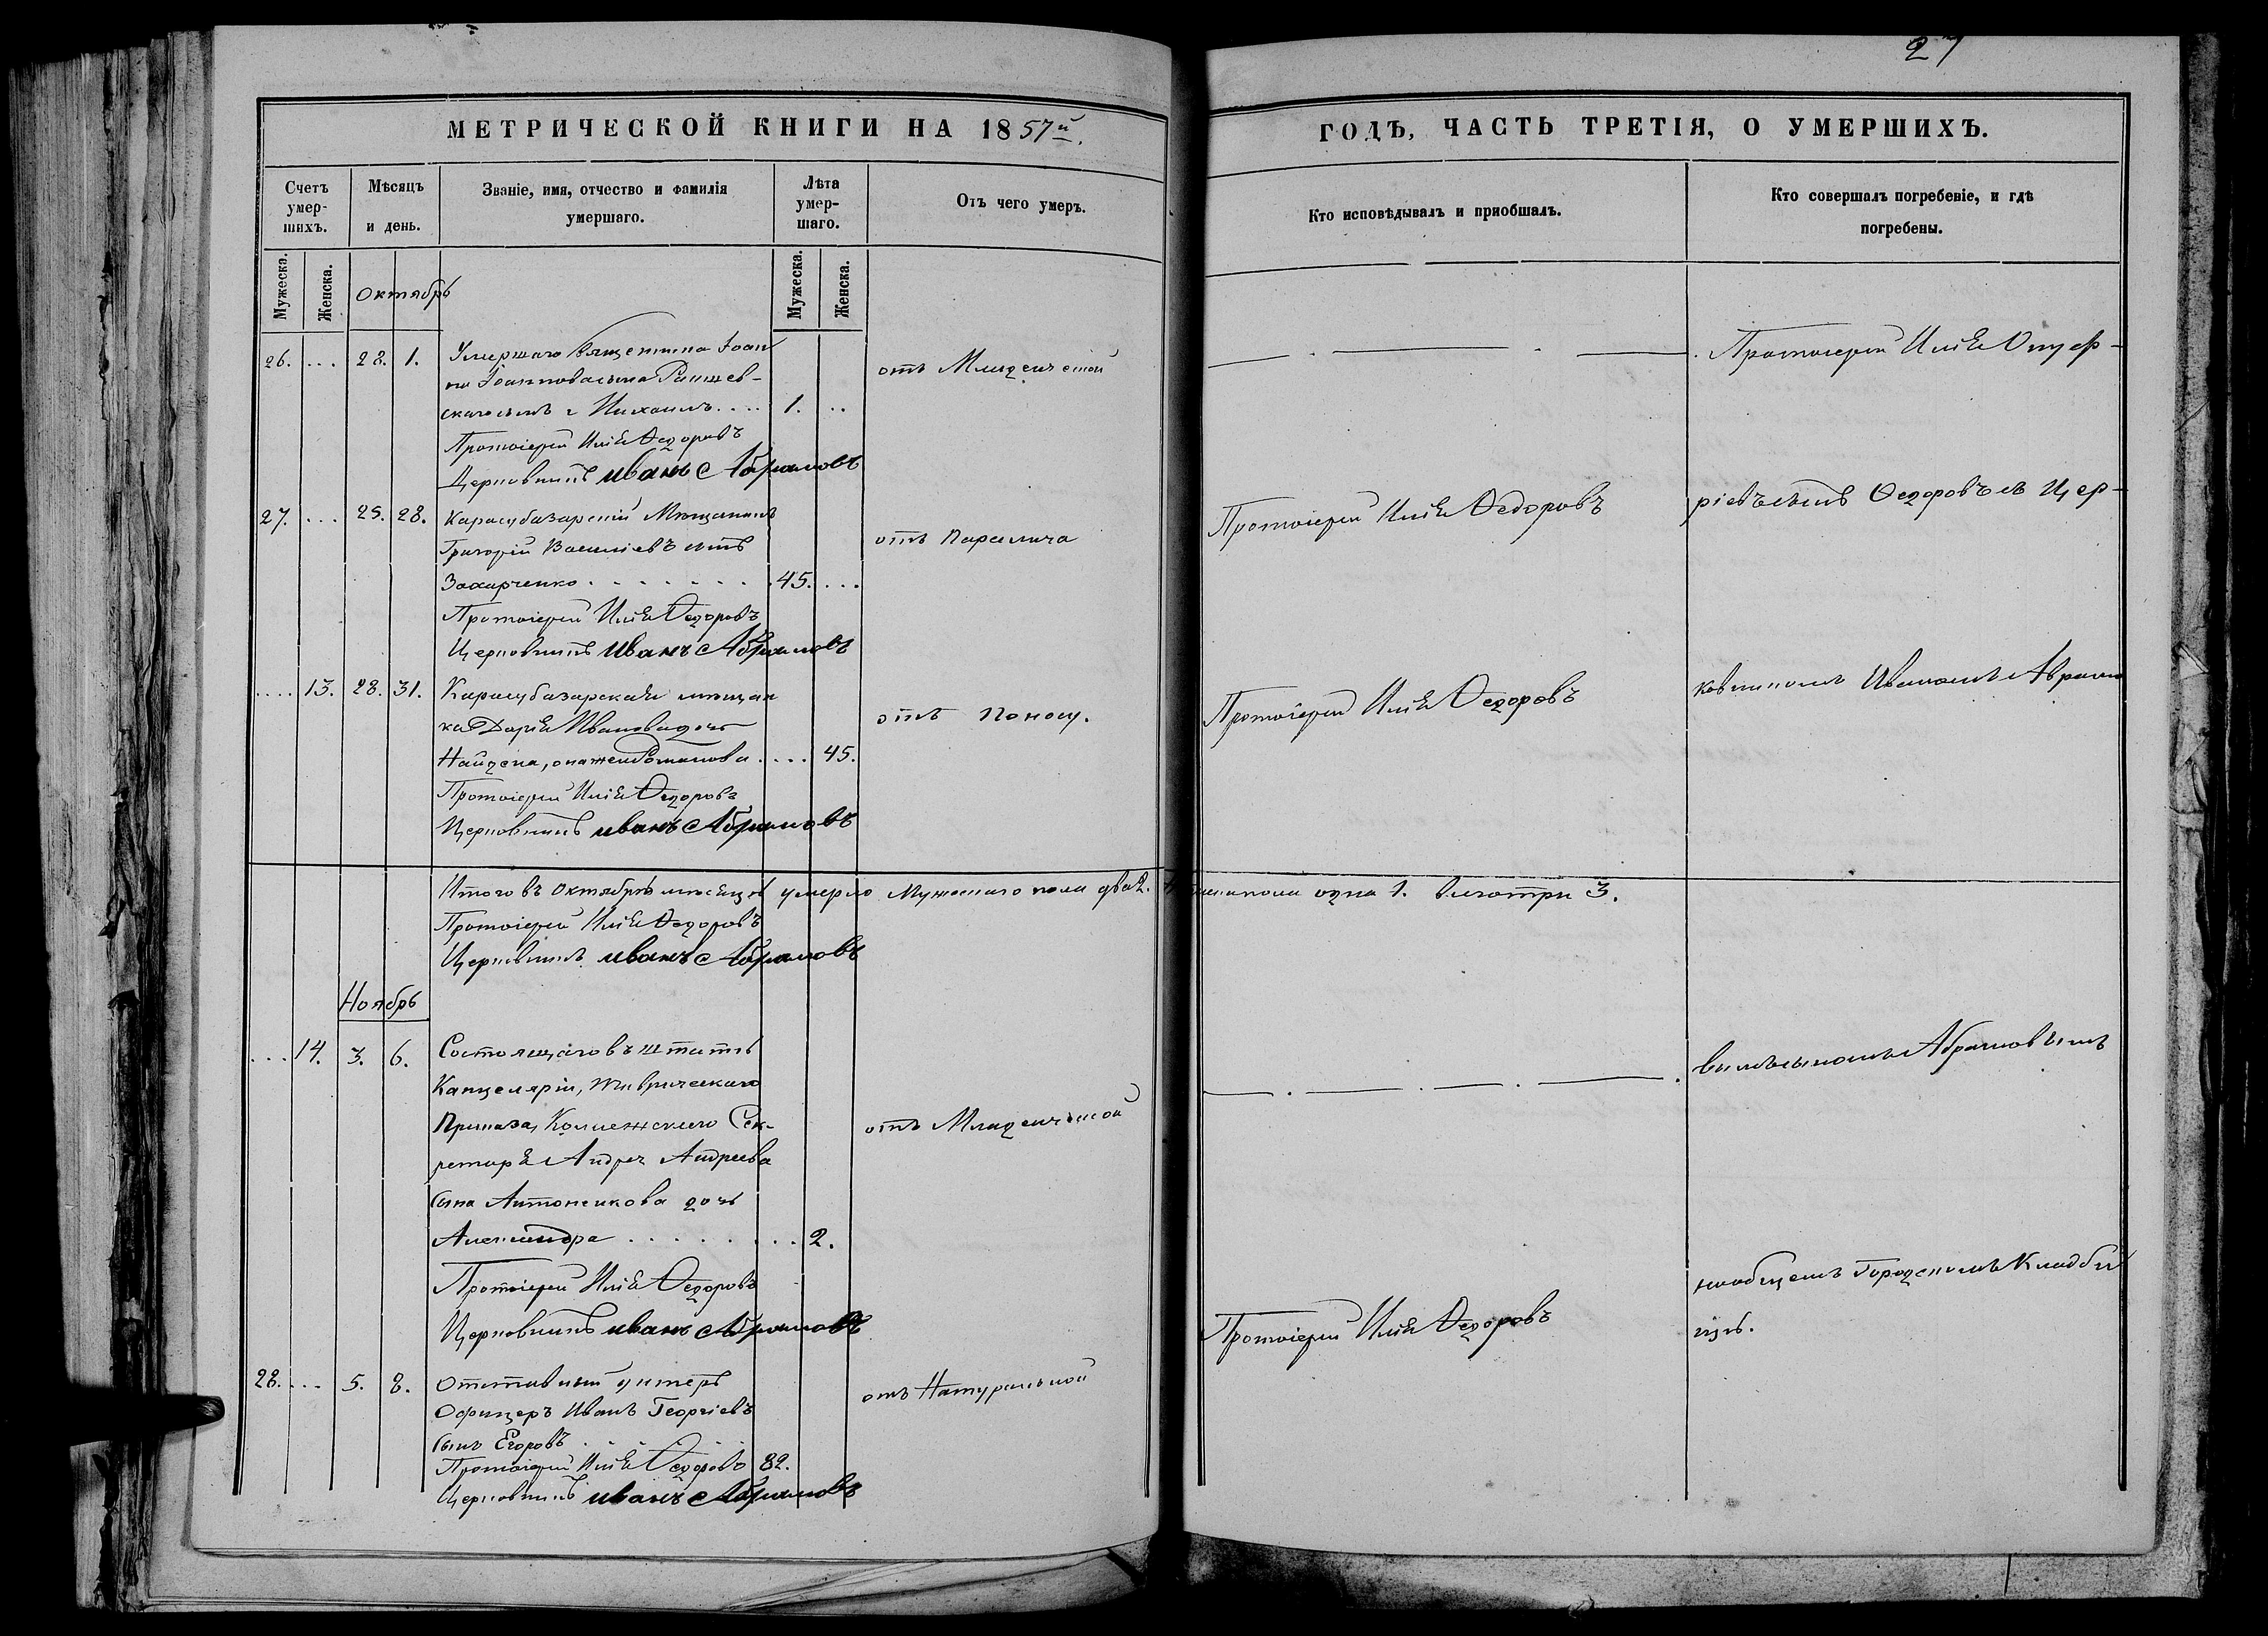 27
МЕТРИЧЕСКОЙ КНИГИ НА 1857й.
Счетъ умер-шихъ.
Мѣсяцъ и день.
Званіе, имя, отчество и фамилія умершаго.
Лѣта умер-шаго.
Отъ чего умеръ.
Мужеска.
Женска.
Мужеска.
Женска.
Октябрь
26. ... 28. 1. Умершаго Священника Іоан
на Іоаннова сына
скаго сынъ Михаилъ.... 1. ..
отъ Младенческой
Протоіерей Илія Ѳедоровъ
Церковникъ Иванъ Абрамовъ
27. ... 25. 28. Карасубазарскій Мѣщанинъ
Григорій Васильевъ сынъ
Захарченко. . . . . . . . 45. ...
отъ Паралича
Протоіерей Илія Ѳедоровъ
Церковникъ Иванъ Абрамовъ
.... 13. 28. 31. Карасубазарская мѣщан
ка Дарія Иванова дочь
Найдена, она же . . . . 45.
отъ Поносу.
Протоіерей Илія Ѳедоровъ
Церковникъ Иванъ Абрамовъ
Итого въ Октябрѣ мѣсяцѣ умерло Мужескаго пола два 2.
Протоіерей Илія Ѳедоровъ
Церковникъ Иванъ Абрамовъ
Ноябрь
... 14. 3. 6. Состоящаго въ штатѣ
Канцеляріи, Таврическаго
Приказа, Коллежскаго Сек-
ретаря Андрея Андреева
сына Антоненкова дочь
Александра . . . . . . . . . 2.
отъ Младенческой
Протоіерей Илія Ѳедоровъ
Церковникъ Иванъ Абрамовъ
28. ... 5. 8. Отставный унтеръ
Офицеръ Иванъ Георгіевъ
сынъ Егоровъ . . . . . 82.
отъ Натуральной
Протоіерей Илія Ѳедоровъ
Церковникъ Иванъ Абрамовъ
ГОДЪ, ЧАСТЬ ТРЕТІЯ, О УМЕРШИХЪ.
Кто исповѣдывалъ и приобщалъ.
Кто совершалъ погребеніе, и гдѣ погребены.
Протоіерей Илія Онуф-
Протоіерей Илія Ѳедоровъ
ріевъ сынъ Ѳедоровъ съ Цер-
Протоіерей Илія Ѳедоровъ
ковникомъ Иваномъ Абрамо
пола одна 1. Всего три 3.
вымъ сыномъ Абрамовымъ
на общемъ Городскомъ Кладби
Протоіерей Илія Ѳедоровъ
щѣ.